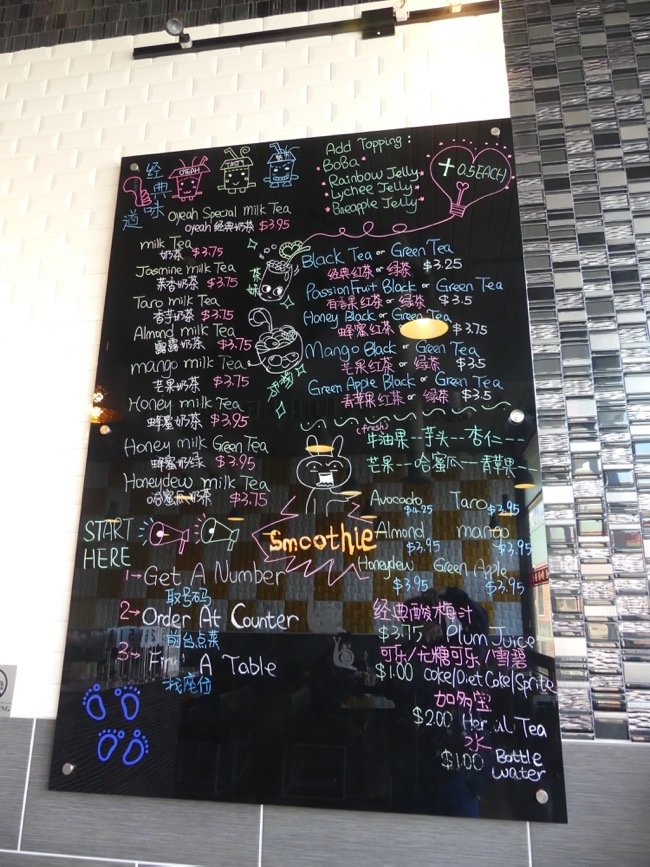 经典味道
OYEAH
TASTY
Oyeah Special milk Tea
oyeah 经典奶茶 $3.95
milk Tea
奶茶 $3.75
Jasmine milk Tea
茉香奶茶 $3.75
Taro milk Tea
香芋奶茶 $3.75
Almond milk Tea
露露奶茶 $3.75
mango milk Tea
芒果奶茶 $3.75
Honey milk Tea
蜂蜜奶茶 $3.95
Honey milk Green Tea
蜂蜜奶绿 $3.95
Honeydew milk Tea
哈蜜瓜奶茶 $3.75
Add Topping:
BoBa
*Rainbow Jelly*
*Lychee Jelly*
+0.5EACH
Black Tea or Green Tea
经典红茶 or 绿茶 $3.25
Passionfruit Black or Green Tea
百香果红茶 or 绿茶 $3.5
Honey Back or Green Tea
蜂蜜红茶 or $3.75
Mango Black or Green Tea
芒果红茶 or 绿茶 $3.5
Green Apple Black or Green Tea
青苹果红茶 or 绿茶 $3.5
(fresh)
牛油果--芋头--杏仁--
芒果--哈蜜瓜--青苹果--
Smoothie
Avocado $4.25 Taro $3.95
Almond $3.95 mango $3.95
Honeydew $3.95 Green Apple $3.95
START HERE
1→Get A Number
取号码
2→Order At Counter
前台点菜
3→ A Table
找座位
经典酸梅汁
$3.75 Plum Juice
可乐/无糖可乐/雪碧
$1.00 coke/Diet Coke/Sprite
加多宝
$2.00 Tea
水
$1.00 Bottle
water